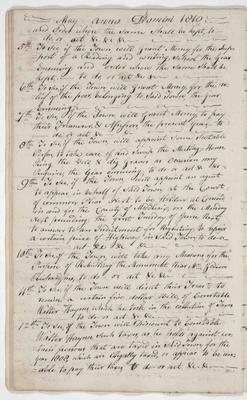 May Anno Domini 1810
and Order when the Same Shall be kept, to
do or act &c &c &c
5th To See if the Town will Grant Money for the Sup
port of a Reading and writing School the Year
Ensuing and order where the Same Shall be
kept to do or act &c
6th To See if the Town will Grant Money for the
of the poor belonging to Said Town the Year
Ensuing
7th To See if the Town will Grant Money to pay
their Ordinance & the present year, to
do or act &c &c
8th To See if the Town will appoint Some Suitable
Person to take care of and Sweep the Meeting House
and as occasion may
Require, the Year ensuing, to do or act &c
9th To See if the Town will appoint an agent
to appear in behalf of Said Town at the Court
of Common Pleas to be holden at
in and for the County of Middlesex, on the
Next the first Tuesday of June Next
to answer to an Indictment for Neglecting to repair
a certain piece of Highway in Said Town to do or
act &c &c
10th To See if the Town will take any Measures for the
Purpose of Rebuilding the
to do or act &c &c
11th To See if the Town will direct their Treasurer to
receive a certain five dollar Bill of Constable
Walter Haynes which he took in the collection of Taxes
to do or act &c &c
12th To See if the Town will Discount to Constable
Walter Haynes Such taxes as he holds against cer
tain persons that are taxed in Said Town for the
year 1808 which are illegally taxed, or appear to be un
able to pay their taxes to do or act &c &c